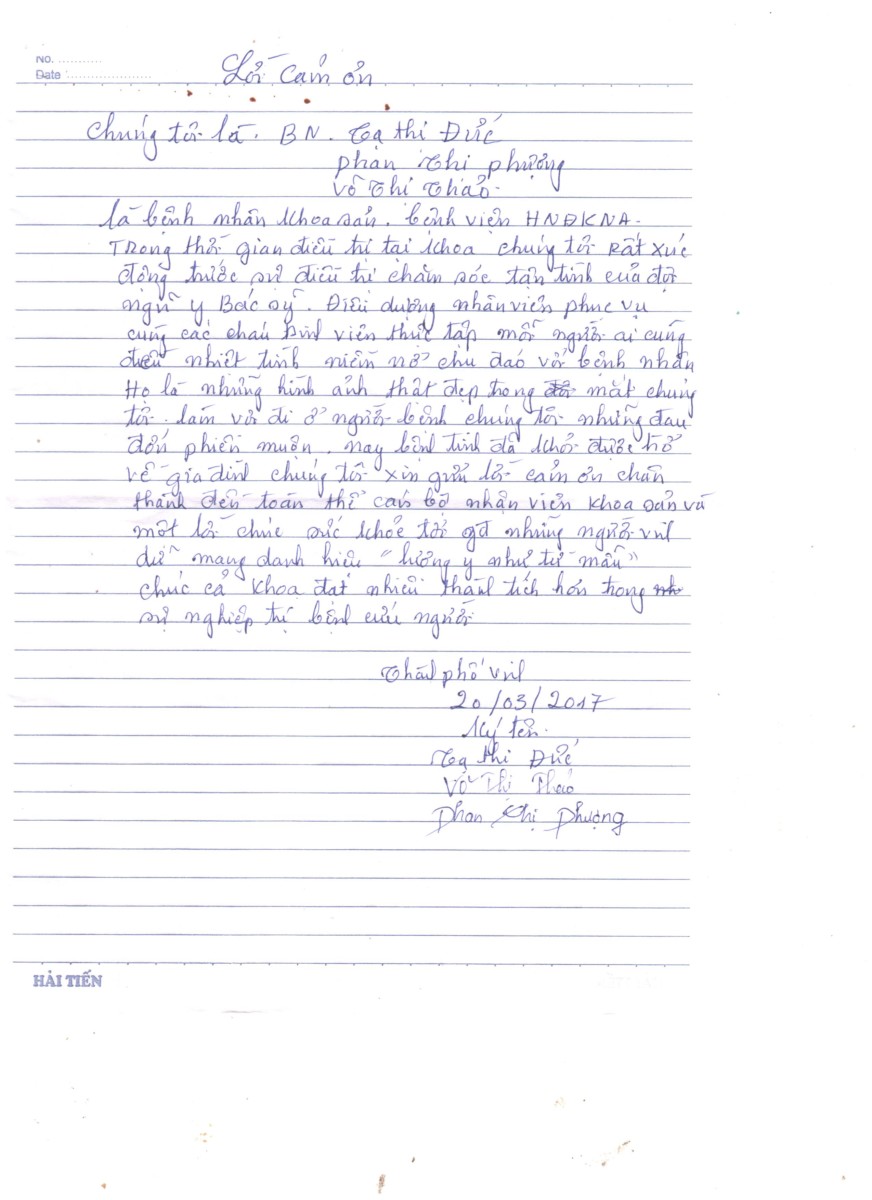 No. ............
Date ......................
Lời cảm ơn
Chúng tôi là. BN. Tạ thị Đức
phan thị phượng
Võ thị thảo.
là bệnh nhân khoa sản. bệnh viện HNĐKNA.
Trong thời gian điều trị tại khoa chúng tôi Rất xúc
động trước sự điều trị chăm sóc tận tình của đội
ngũ y Bác sỹ. Điều dượng nhân viên phục vụ
cùng các cháu sinh viên thực tập mỗi người ai cũng
điều nhiệt tình niềm nở chu đáo với bệnh nhân
Họ là những hình ảnh thật đẹp trong mắt chúng
tôi. làm vơi đi ở người bệnh chúng tôi những đau
đớn phiền muộn. nay bệnh tình đã khỏi được trở
về gia đình chúng tôi xin gửi lời cảm ơn chân
thành đến toàn thể cán bộ nhân viên khoa sản và
một lời chúc sức khỏe tới những người vinh
dự mang danh hiệu "lương y như từ mẫu"
chúc cả khoa đạt nhiều thành tích hơn trong
sự nghiệp trị bệnh cứu người
Thành phố vinh
20/03/2017
Ký tên.
Tạ thị Đức
Võ Thị Thảo
Phan Thị Phượng
HẢI TIẾN